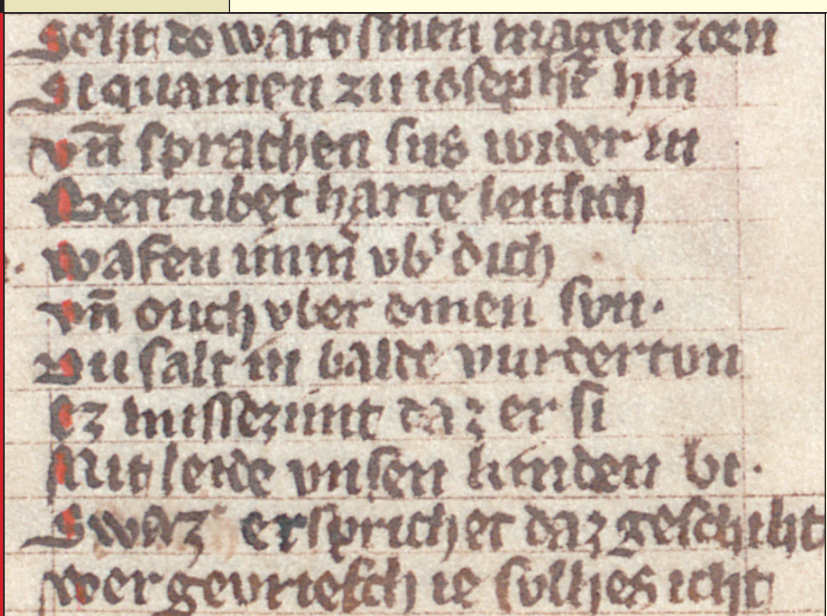 Seht do wart sinen magen zorn
Si quamen zu iosephē hin
vn̄ sprachen sus wider in
Betrubet harte leitlich
wafen im̄m̄ vb' dich
vn̄ ouch vber dinen svn·
Du salt in balde vurdertvn
Ez missezimt daz er si
Mit leide vnsen kinden bi·
Swaz er sprichet daz geschiht
wer gevriesch ie sulhes icht